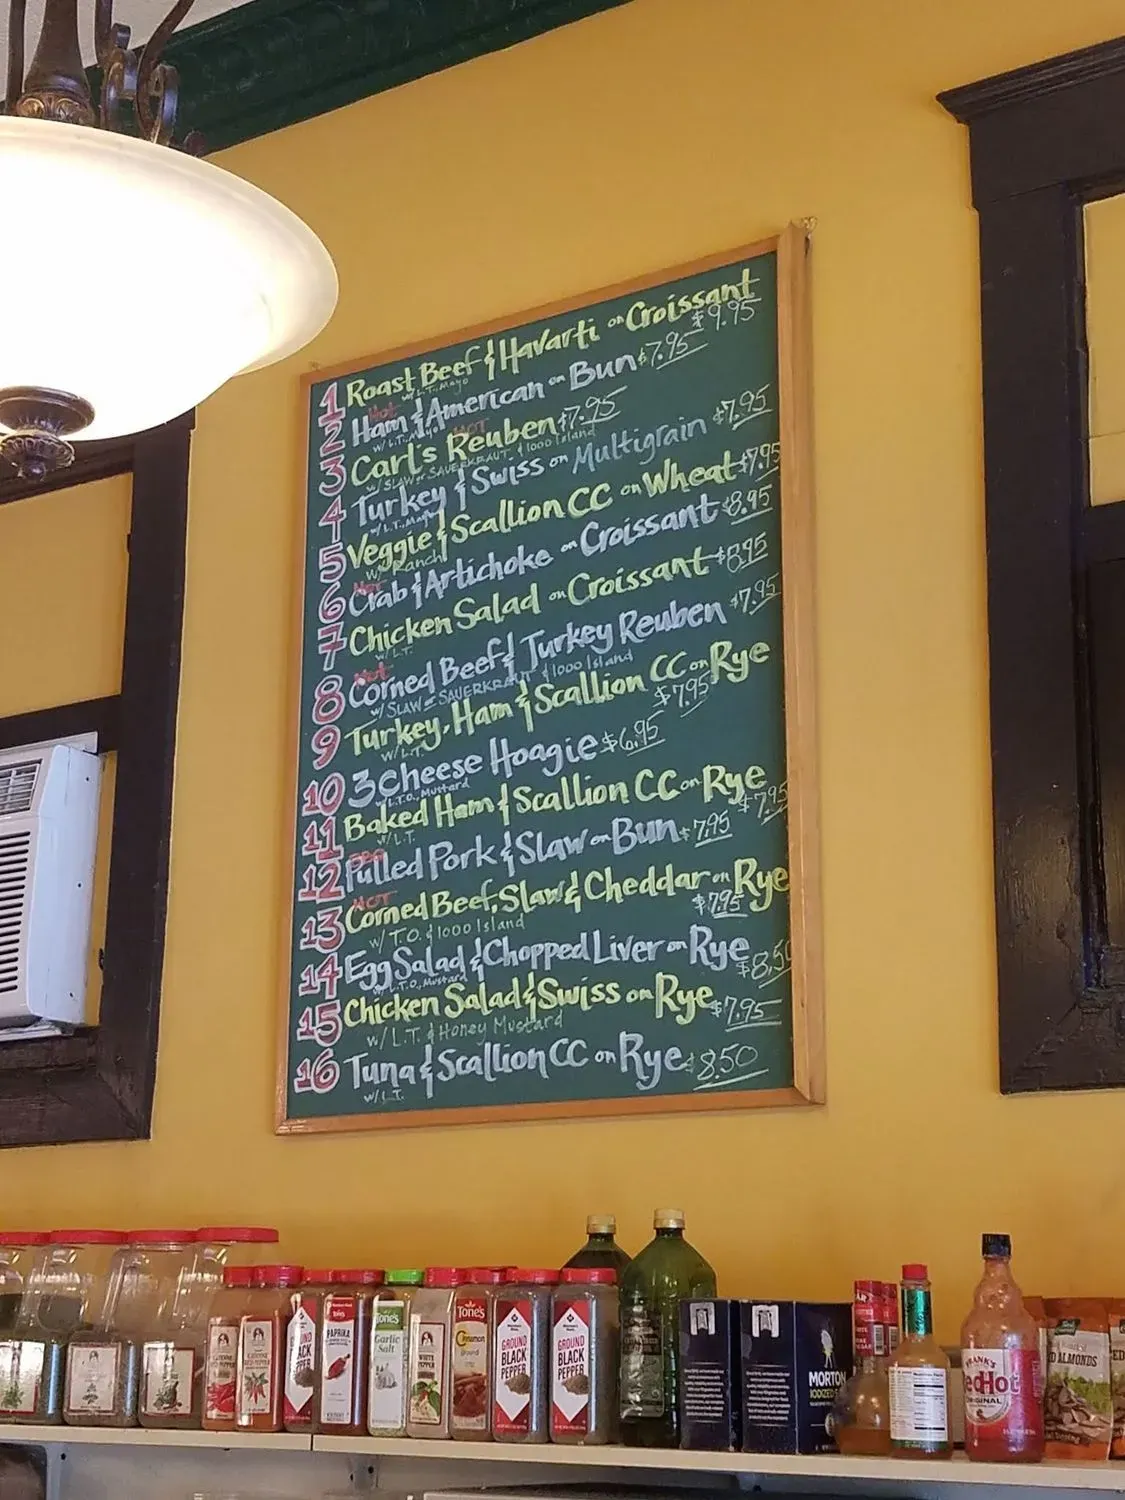 1 Roast Beef & Havarti on Croissant
w/ L.T. Mayo $9.95
Hot
2 Ham & American on Bun $7.95
w/ L.T. Mayo HOT
3 Carl's Reuben $7.95
w/ SLAW or SAUERKRAUT & 1000 Island
4 Turkey & Swiss on Multigrain $7.95
w/ L.T., Mayo
5 Veggie & Scallion CC on Wheat $7.95
w/ Ranch
Hot
6 Crab & Artichoke on Croissant $8.95
7 Chicken Salad on Croissant $8.95
w/ L.T.
Hot
8 Corned Beef & Turkey Reuben $7.95
w/ SLAW or SAUERKRAUT & 1000 Island
9 Turkey, Ham & Scallion CC on Rye
w/ L.T. $7.95
10 3 Cheese Hoagie $6.95
w/ L.T.O., Mustard
11 Baked Ham & Scallion CC on Rye
w/ L.T. $7.95
BBQ
12 Pulled Pork & Slaw on Bun $7.95
HOT
13 Corned Beef, Slaw & Cheddar on Rye
w/ T.O. & 1000 Island $7.95
14 Egg Salad & Chopped Liver on Rye
w/ L.T.O., Mustard $8.50
15 Chicken Salad & Swiss on Rye $7.95
w/ L.T. & Honey Mustard
16 Tuna & Scallion CC on Rye $8.50
w/ L.T.
BLACK PEPPER
Tone's
PAPRIKA
Tone's
Garlic Salt
WHITE PEPPER
Tone's
Cinnamon
Ground
GROUND BLACK PEPPER
GROUND BLACK PEPPER
MORTON
IODIZED
FRANK'S
RedHot
ORIGINAL
ALMONDS